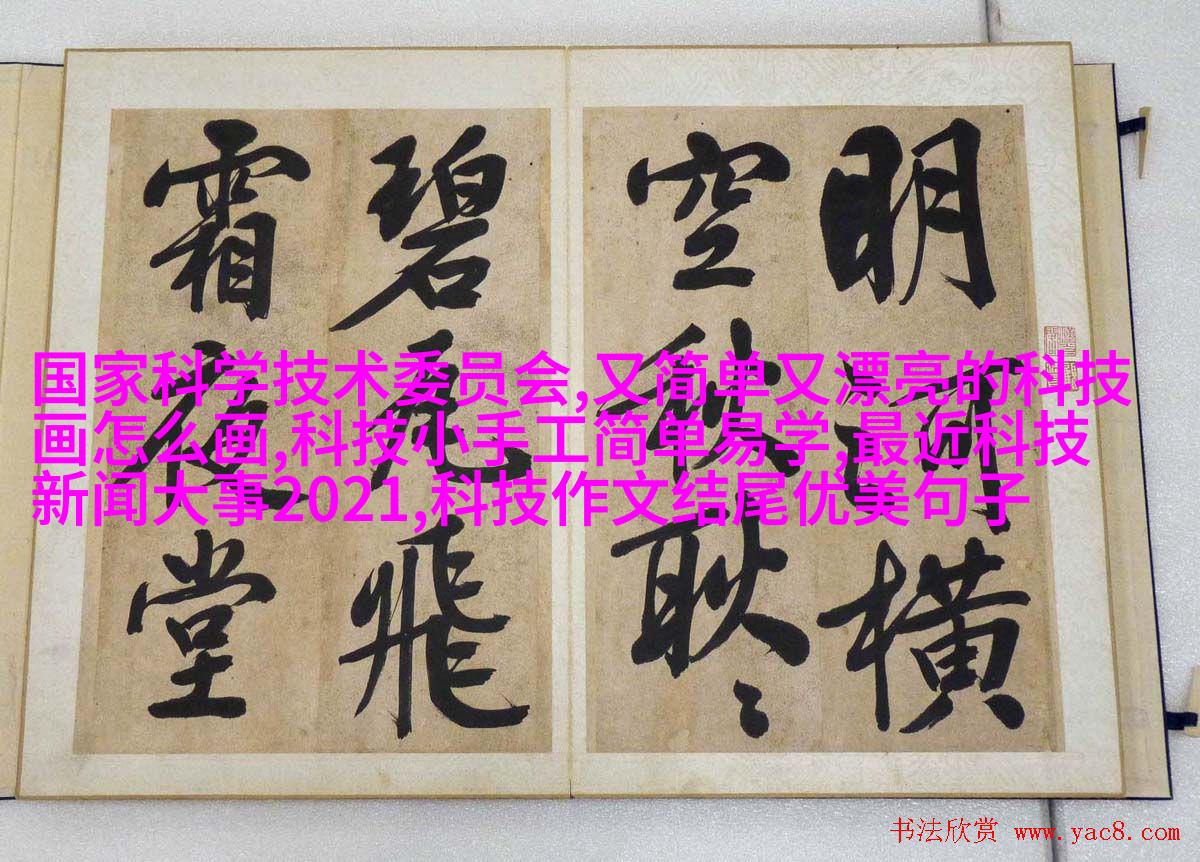 明河橫
空秋耿〻
碧瓦飛
霜夜堂
国家科学技术委员会,又简单又漂亮的科技
画怎么画,科技小手工简单易学,最近科技
新闻大事2021,科技作文结尾优美句子
书法欣赏 www.yac8.com